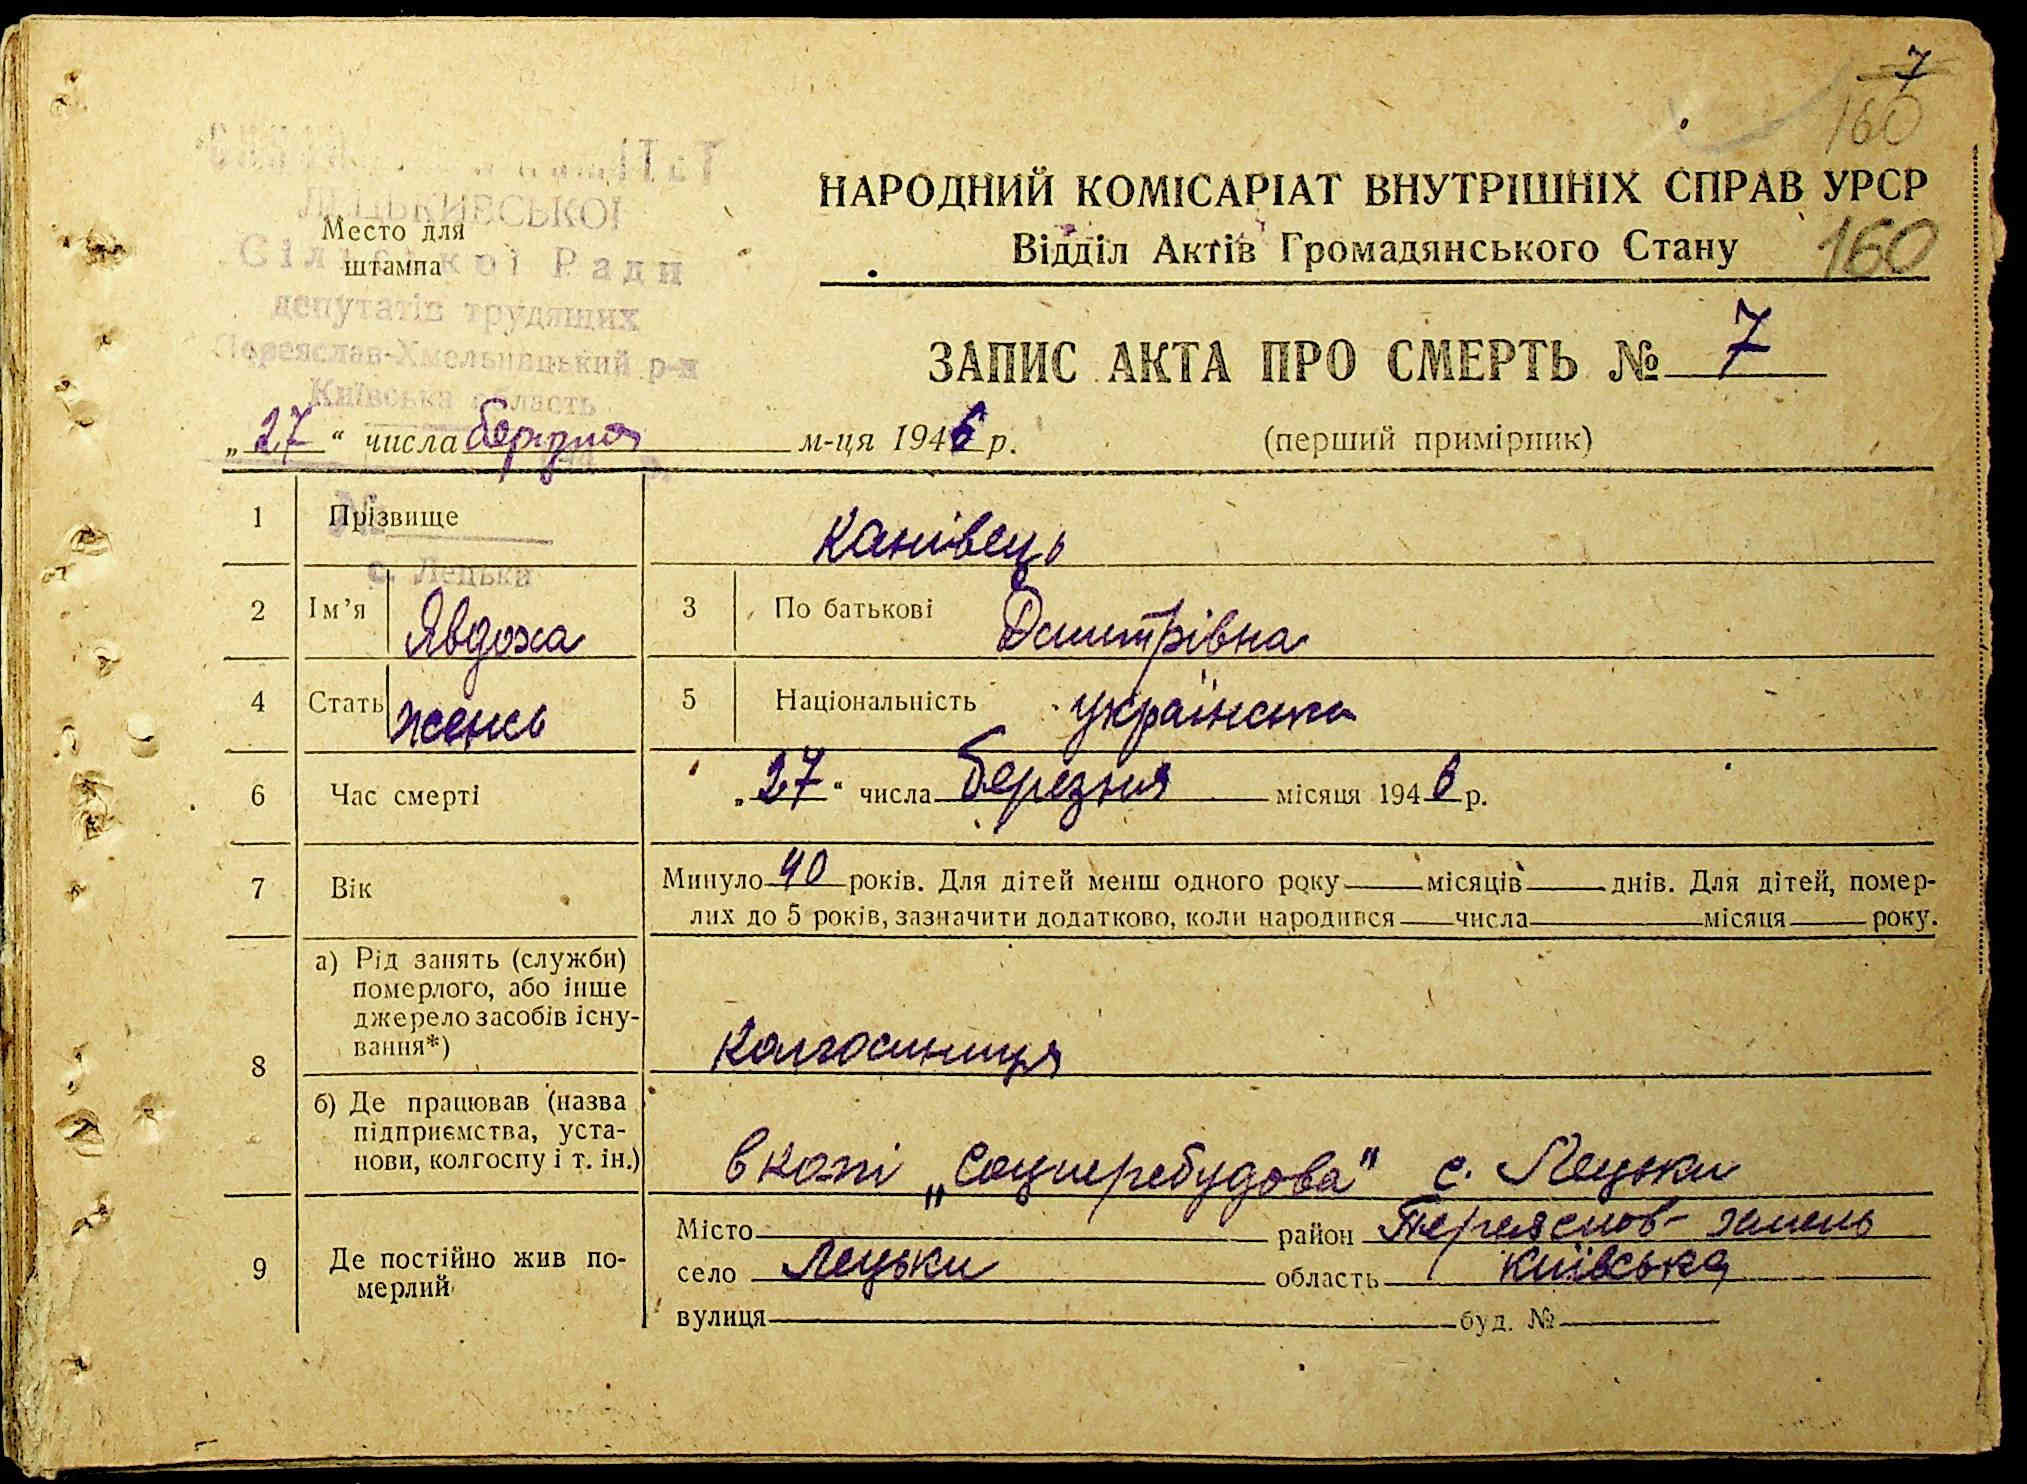 7
160
НАРОДНИЙ КОМІСАРІАТ ВНУТРІШНІХ СПРАВ УРСР
Відділ Актів Громадянського Стану
160
ЛЕЦЬКИВСЬКОЇ
Место для
штампа
Сільської Ради
депутатів трудящих
Переяслав-Хмельницький р-н
Київська область
ЗАПИС АКТА ПРО СМЕРТЬ № 7
„27“ числа березня м-ця 1946 р.
(перший примірник)
№
с. Лецьки
1 Прізвище Канівець
2 Ім’я Явдоха 3 По батькові Дмитрівна
4 Стать жінсь 5 Національність українська
6 Час смерті „27“ числа березня місяця 1946 р.
7 Вік Минуло 40 років. Для дітей менш одного року — місяців — днів. Для дітей, помер-
лих до 5 років, зазначити додатково, коли народився — числа — місяця — року.
8 а) Рід занять (служби)
померлого, або інше
джерело засобів існу-
вання*)
Колгоспниця
б) Де працював (назва
підприємства, уста-
нови, колгоспу і т. ін.)
в колгі „Соцперебудова“ с. Лецьки
9 Де постійно жив по-
мерлий
Місто район Переяслов-хмель
село Лецьки область Київська
вулиця буд. №